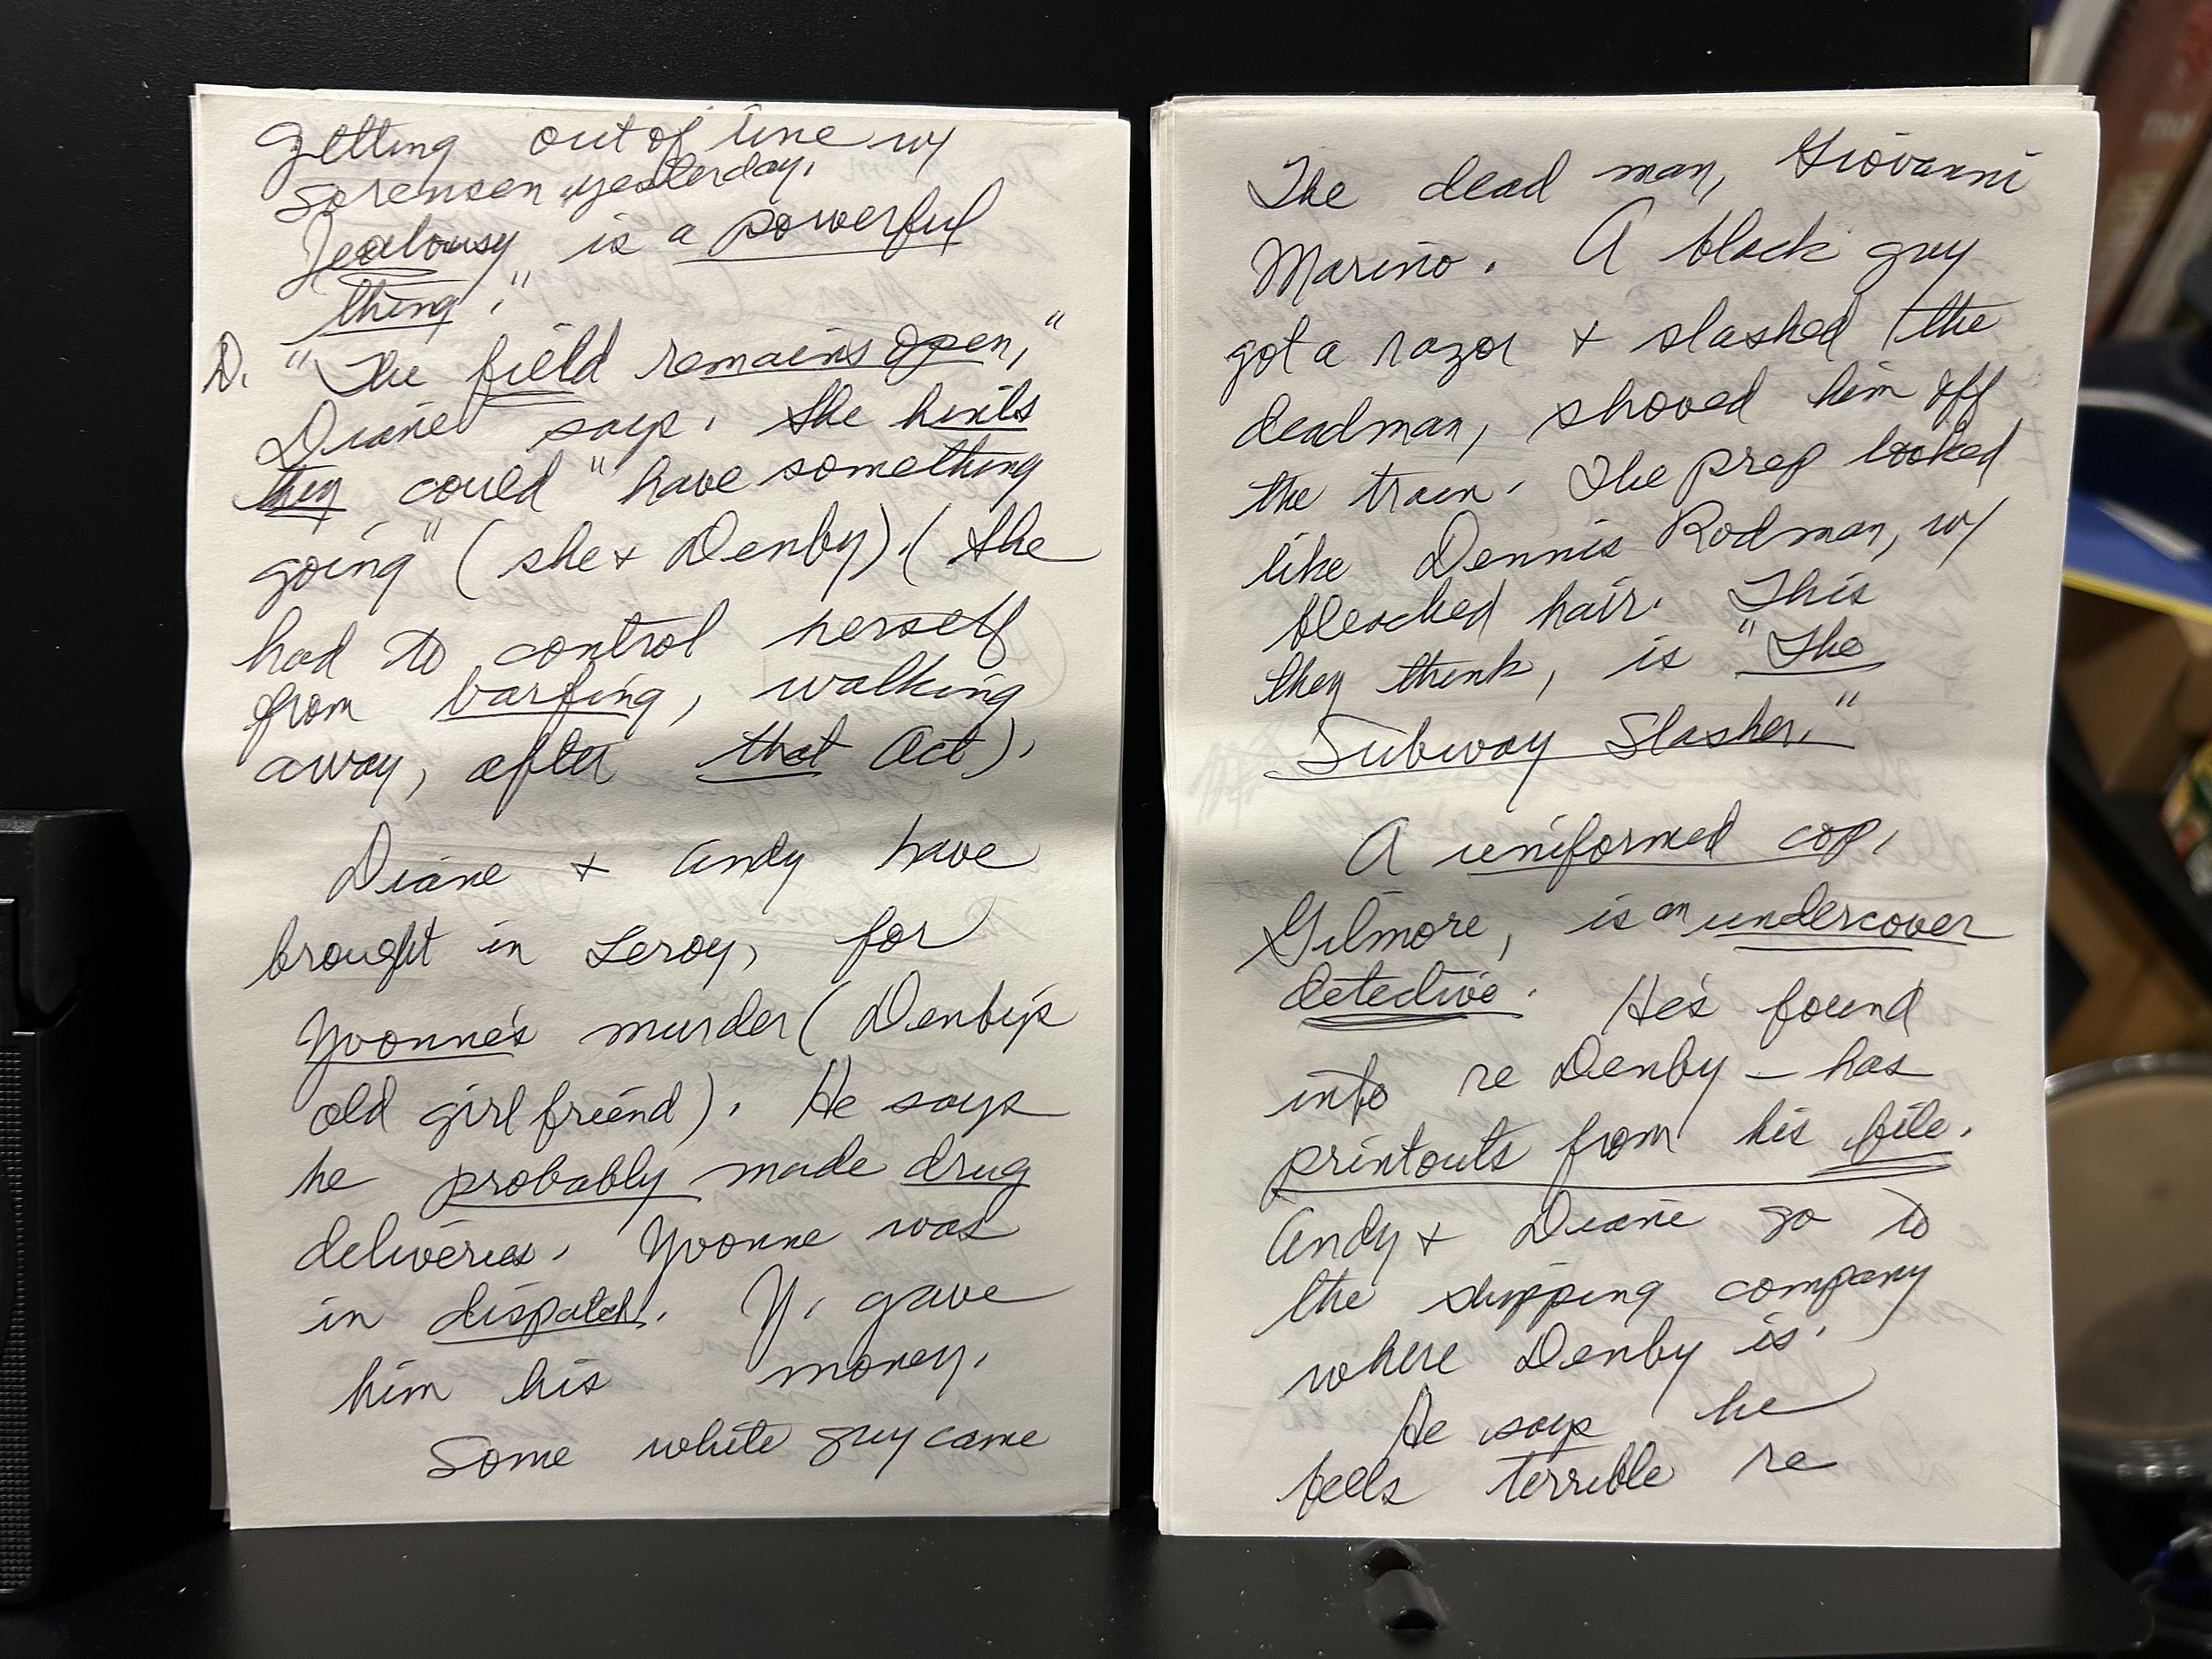 getting out of line w/
Sorensen yesterday.
Jealousy is a powerful
thing."
D. "The field remains open,"
Diane says. She hints
they could "have something
going" (she + Denby). (She
had to control herself
from barfing, walking
away, after that act).
Diane + Andy have
brought in Leroy, for
Yvonne's murder (Denby's
old girlfriend). He says
he probably made drug
deliveries. Yvonne was
in dispatch. Y. gave
him his money.
Some white guy came
The dead man, Giovanni
Marino. A black guy
got a razor + slashed the
deadman, shoved him off
the train. The prep looked
like Dennis Rodman, w/
bleached hair. This
they think, is "The
Subway Slasher."
A uniformed cop,
Gilmore, is an undercover
detective. He's found
info re Denby – has
printouts from his file.
Andy + Diane go to
the shipping company
where Denby is.
He says he
feels terrible re